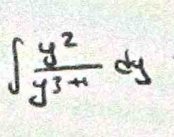 ∫ y²/(y³+1) dy